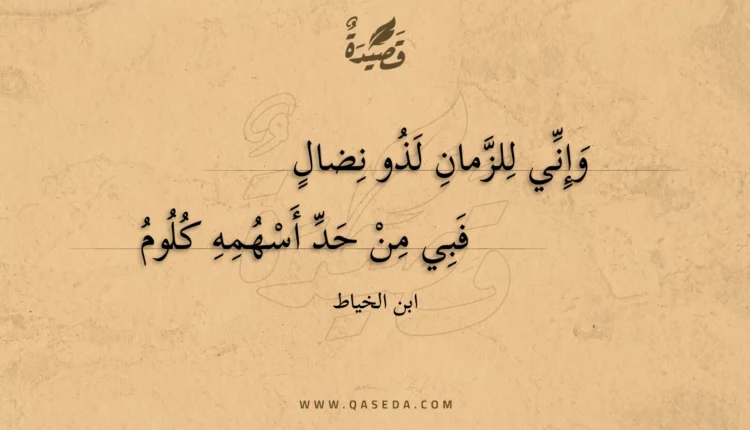 قَصِيْدَةٌ
وَإِنِّي لِلزَّمانِ لَذُو نِضالٍ
فَبِي مِنْ حَدِّ أَسْهُمِهِ كُلُومُ
ابن الخياط
WWW.QASEDA.COM